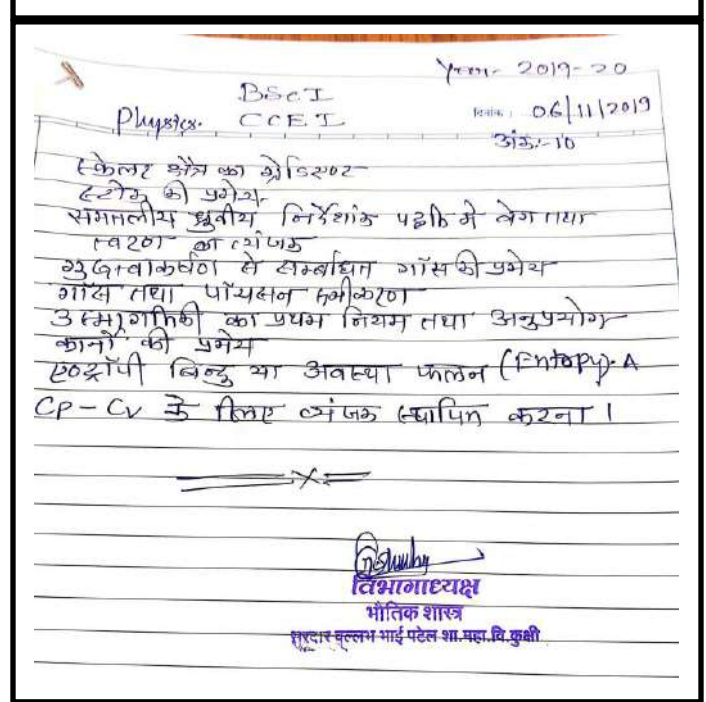 Year- 2019-20
BSc I
दिनांक : 06/11/2019
Physics. CCE I
अंक:-10
स्केलर क्षेत्र का ग्रेडिएण्ट
स्टोक की प्रमेय
समतलीय ध्रुवीय निर्देशांक पद्धति में वेग तथा
त्वरण का व्यंजक
गुरुत्वाकर्षण से सम्बंधित गॉस की प्रमेय
गॉस तथा पॉयसन समीकरण
उष्मागतिकी का प्रथम नियम तथा अनुप्रयोग
कार्नो की प्रमेय
एण्ट्रॉपी बिन्दु या अवस्था फलन (Entopy). A
Cp-Cv के लिए व्यंजक स्थापित करना।
X
विभागाध्यक्ष
भौतिक शास्त्र
सरदार वल्लभ भाई पटेल शा.महा.वि.कुक्षी